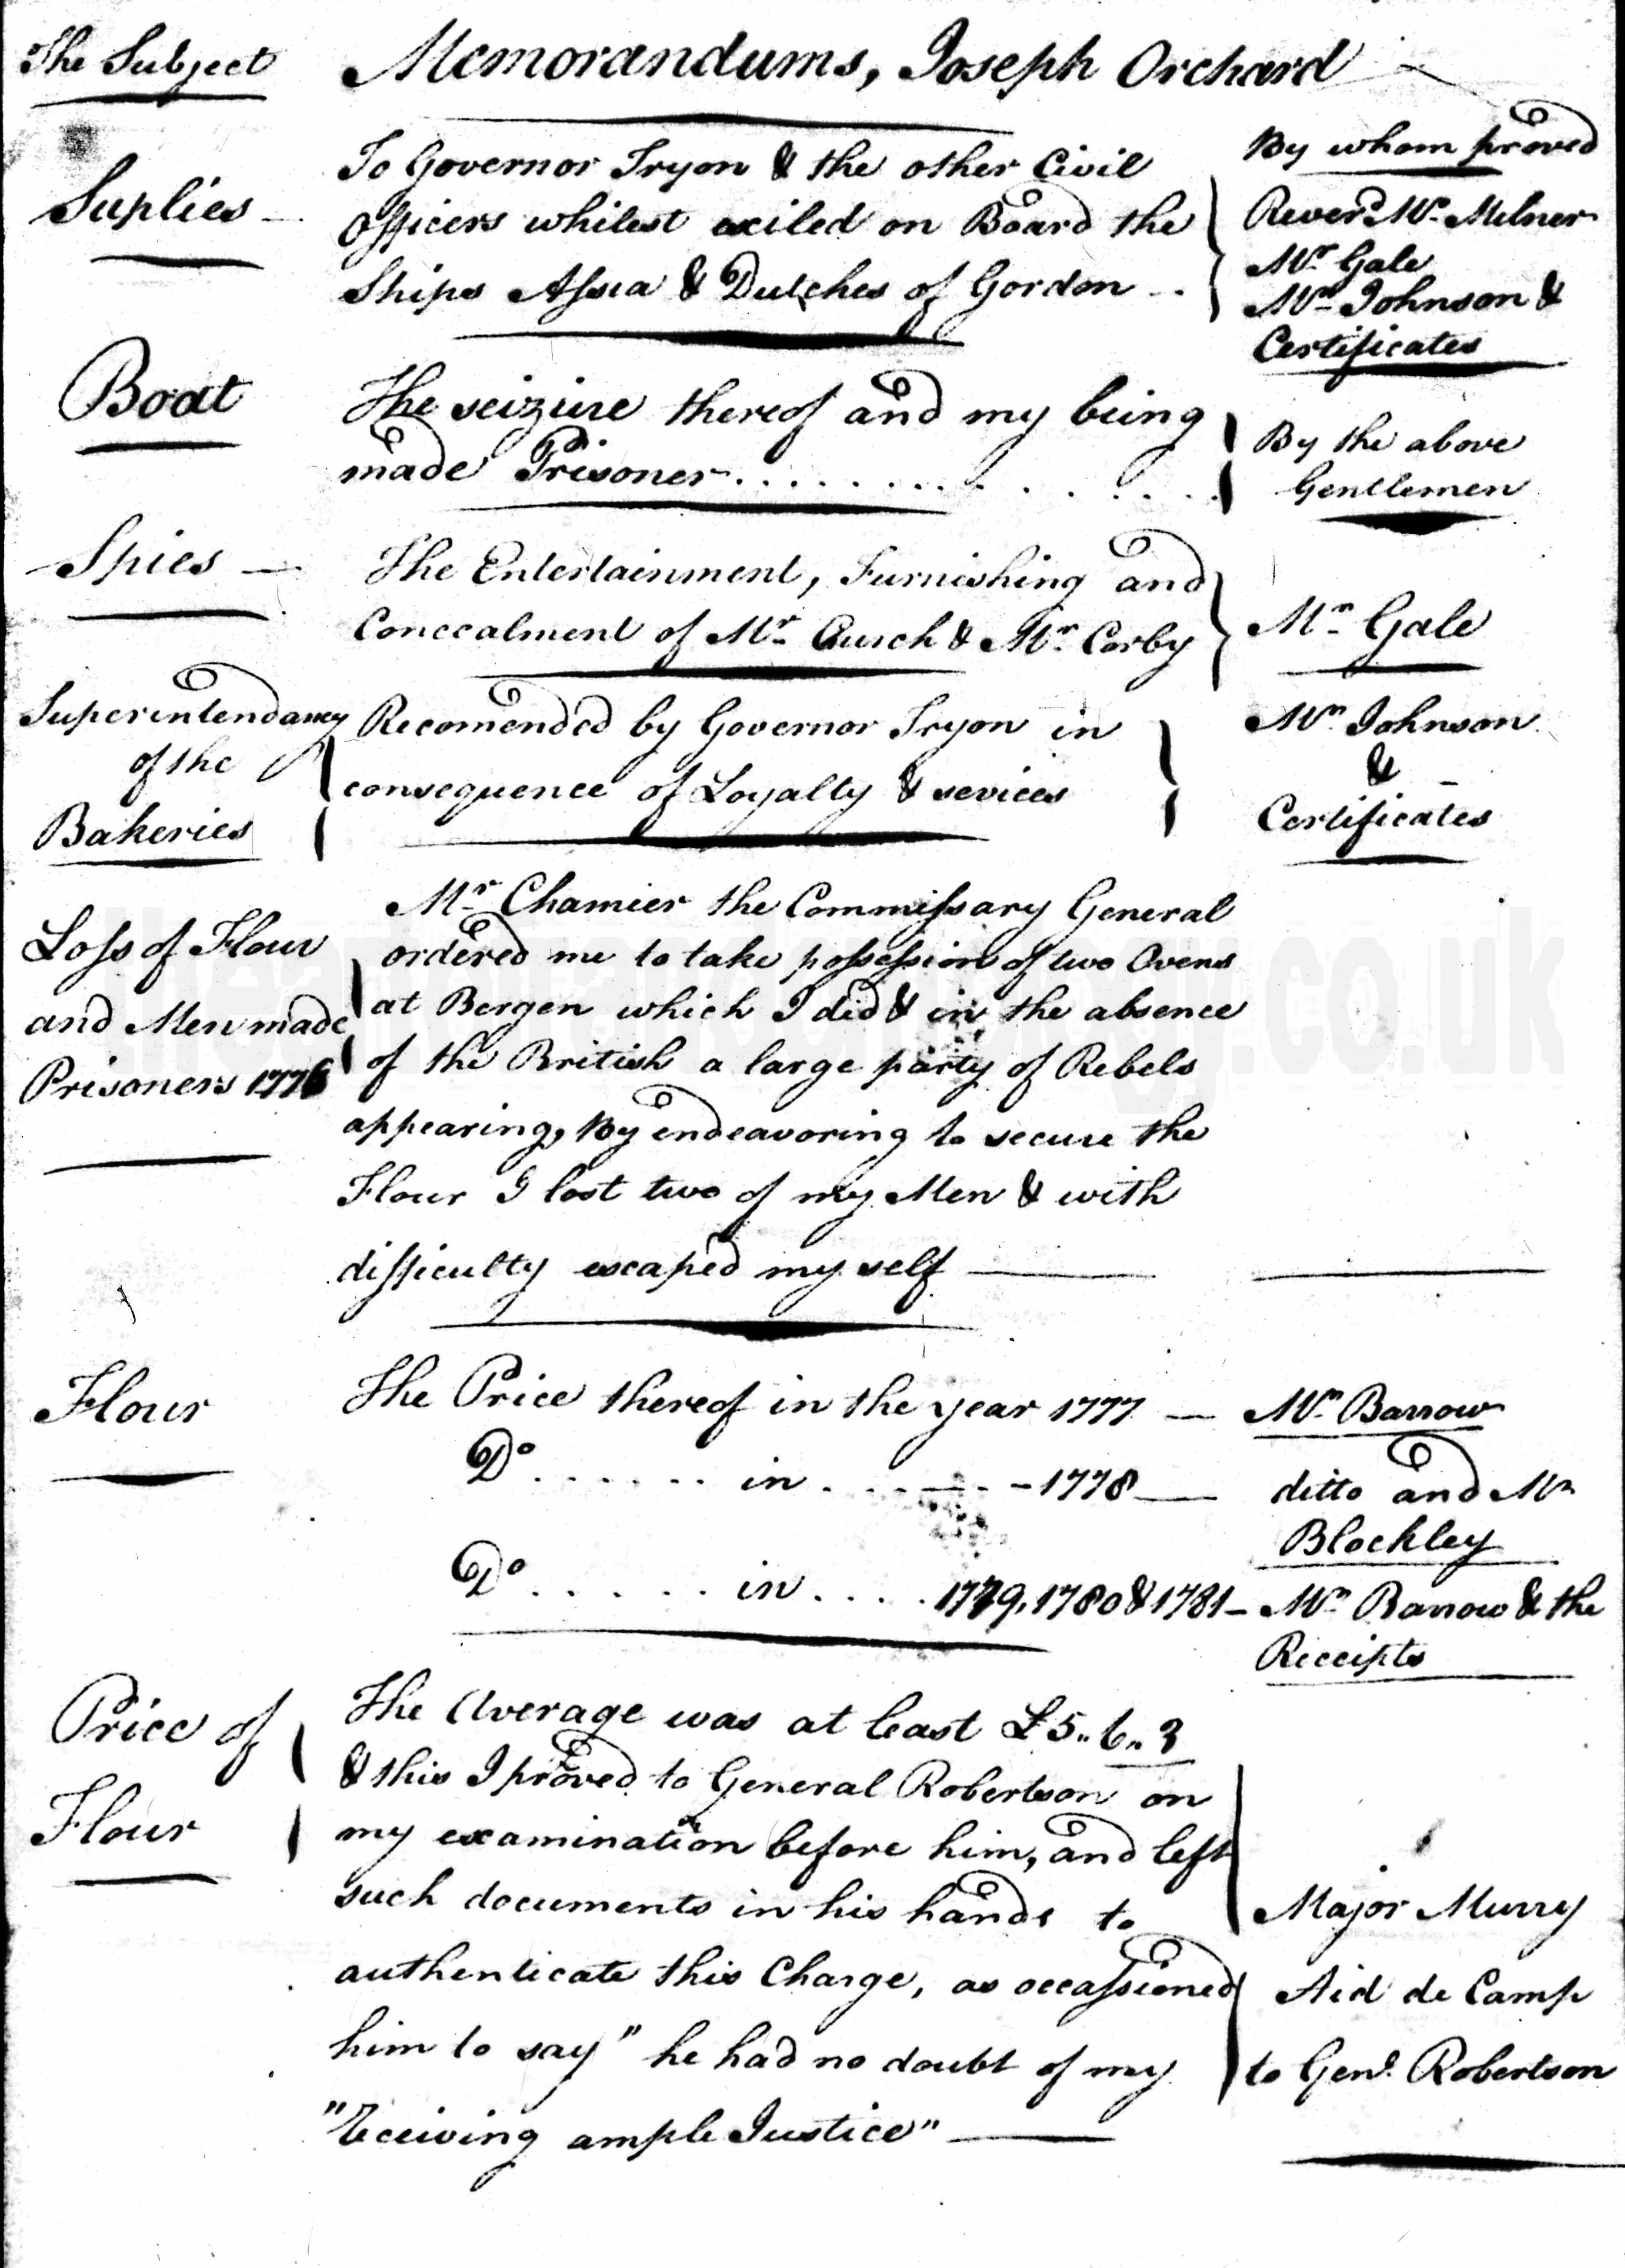 The Subject
Memorandums, Joseph Orchard
By whom proved
Suplies
To Governor Tryon & the other Civil
Officers whilest exiled on Board the
Ships Assia & Dutches of Gordon
Reverd. Mr. Milner
Mr. Gale
Mr. Johnson &
Certificates
Boat
The seizure thereof and my being
made Prisoner. . . . . . . . . . . .
By the above
Gentlemen
Spies
The Entertainment, Furnishing and
Concealment of Mr. & Mr. Corby
Mr. Gale
Superintendancy
of the
Bakeries
Recomended by Governor Tryon in
consequence of Loyalty & sevices
Mr. Johnson
&
Certificates
Loss of Flour
and Men made
Prisoners 1776
Mr. Chamier the Commissary General
ordered me to take possession of two Ovens
at Bergen which I did & in the absence
of the British a large party of Rebels
appearing, By endeavoring to secure the
Flour I lost two of my Men & with
difficulty escaped my self
Flour
The Price thereof in the year 1777 — Mr. Barrow
Do. . . . . . . in . . . . - 1778 — ditto and Mr.
Blockley
Do. . . . . . . in . . . . 1779, 1780 & 1781 — Mr. Barrow & the
Receipts
Price of
Flour
The Average was at least £5„6„3
& this I proved to General Robertson on
my examination before him, and left
such documents in his hands to
authenticate this Charge, as occassioned
him to say" he had no doubt of my
"receiving ample Justice"
Major Murry
Aid de Camp
to Genl. Robertson